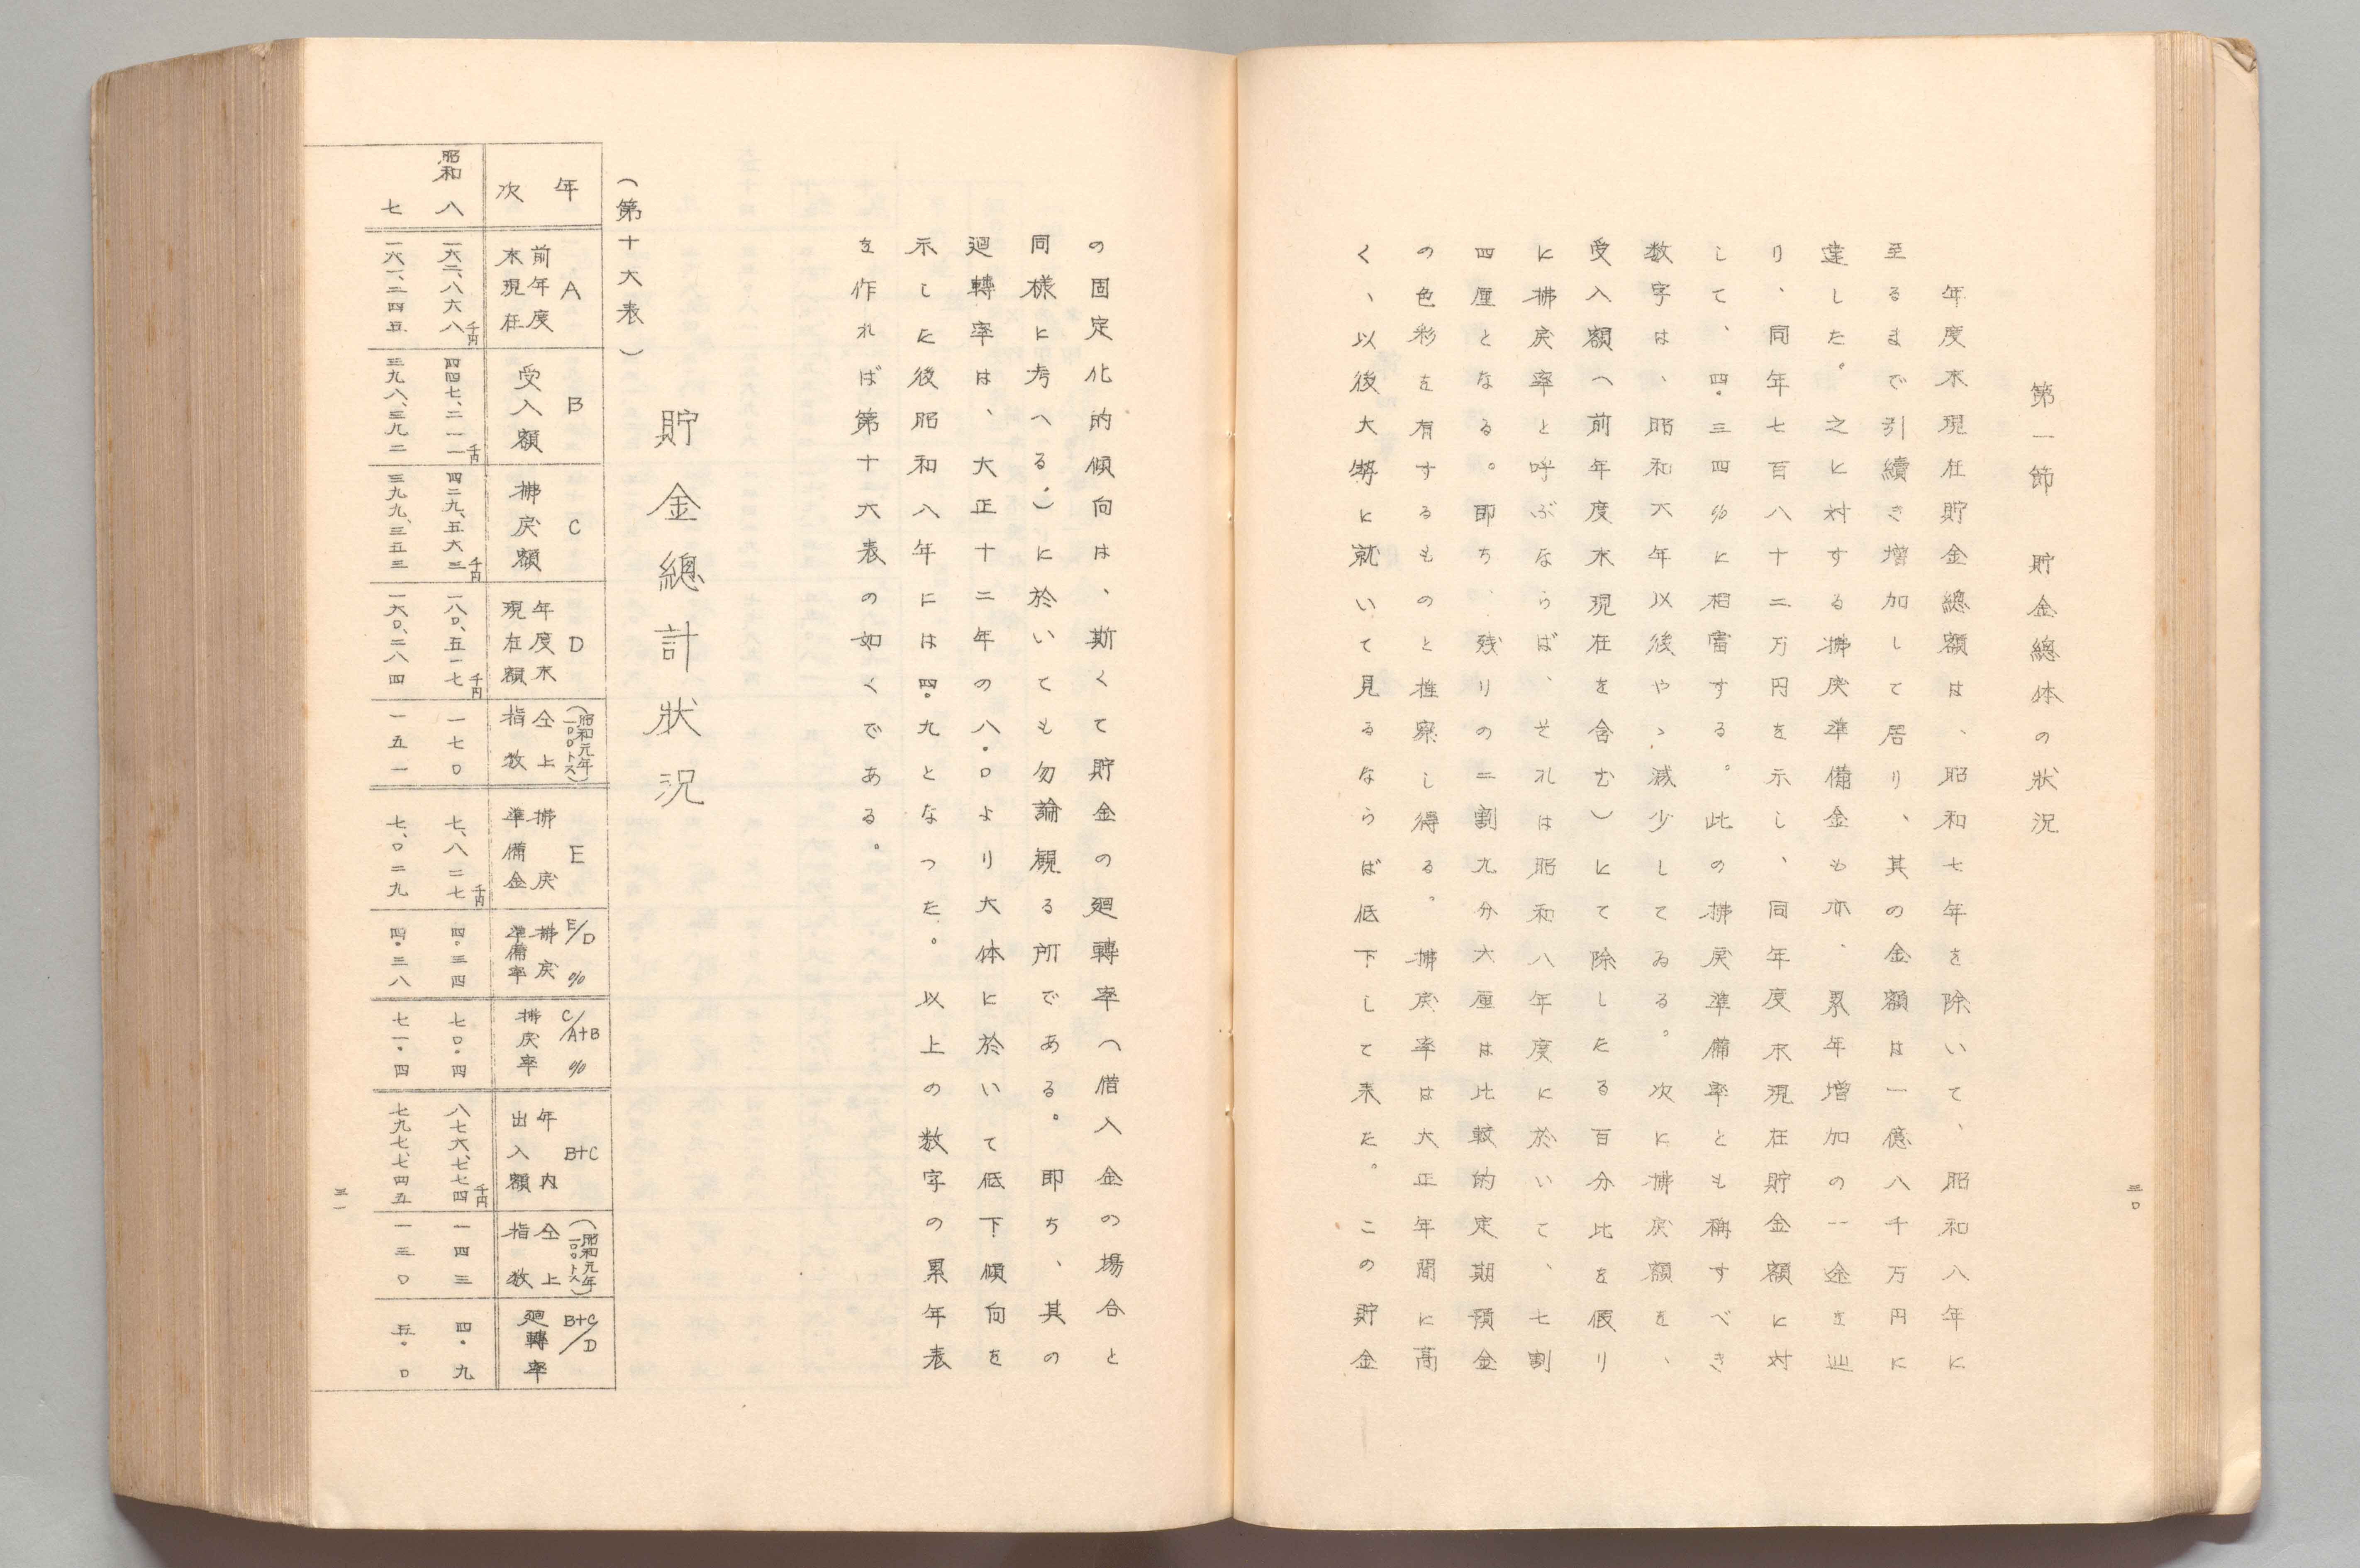 三〇
第一節　貯金總体の狀況
年度末現在貯金總額は、昭和七年を除いて、昭和八年に
至るまで引續き増加して居り、其の金額は一億八千万円に
達した。之に対する拂戾準備金も亦、累年増加の一途を辿
り、同年七百八十二万円を示し、同年度末現在貯金額に対
して、四・三四%に相當する。此の拂戾準備率とも稱すべき
数字は、昭和六年以後やゝ減少してゐる。次に拂戾額を、
受入額(前年度末現在を含む)にて除したる百分比を假り
に拂戾率と呼ぶならば、それは昭和八年度に於いて、七割
四厘となる。即ち、残りの二割九分六厘は比較的定期預金
の色彩を有するものと推察し得る。拂戾率は大正年間に高
く、以後大勢に就いて見るならば低下して来た。この貯金
の固定化的傾向は、斯くて貯金の廻轉率(借入金の場合と
同様に考へる。)に於いても勿論観る所である。即ち、其の
廻轉率は、大正十二年の八・〇より大体に於いて低下傾向を
示した後昭和八年には四・九となつた。以上の数字の累年表
を作れば第十六表の如くである。
貯金總計狀況
(第十六表)
年次
A 前年度末現在
B 受入額
C 拂戾額
D 年度末現在額
仝上指数 (昭和元年一〇〇トス)
E 拂戾準備金
E/D % 拂戾準備率
C/A+B % 拂戾率
B+C 年内出入額
仝上指数 (昭和元年一〇〇トス)
B+C/D 廻轉率
昭和八 一六二、八六八千円 四四七、二一一千円 四二九、五六二千円 一八〇、五一七千円 一七〇 七、八二七千円 四・三四 七〇・四 八七六、七七四千円 一四三 四・九
七 一六一、二四五 三九八、三九二 三九九、三五三 一六〇、二八四 一五一 七、〇二九 四・三八 七一・四 七九七、七四五 一三〇 五・〇
三一